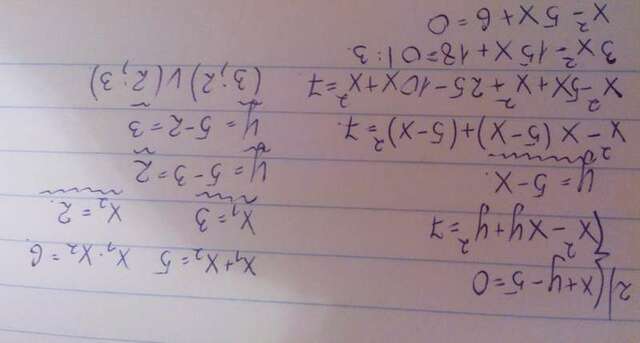 2) { x+y-5=0
x²-xy+y²=7
y=5-x.
x²-x(5-x)+(5-x)²=7.
x²-5x+x²+25-10x+x²=7
3x²-15x+18=0 |:3.
x²-5x+6=0
x₁+x₂=5 x₁·x₂=6.
x₁=3 x₂=2.
y=5-3=2
y=5-2=3
(3;2) V (2;3)